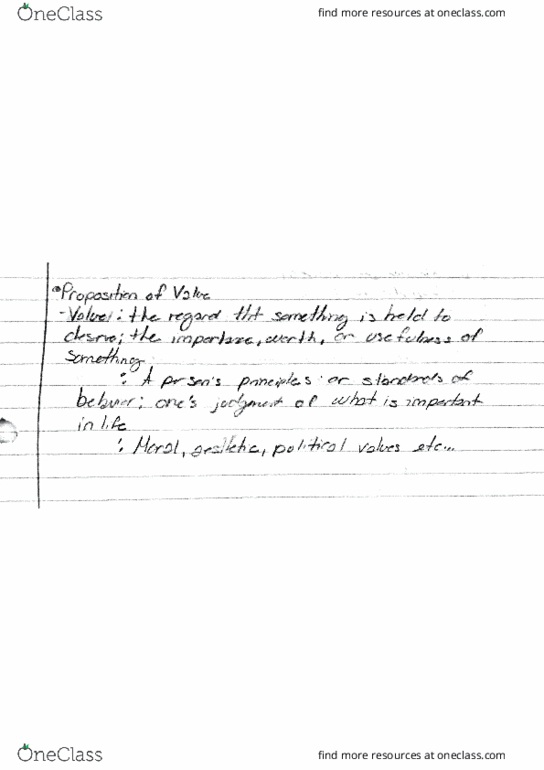 OneClass
find more resources at oneclass.com
•Proposition of Value
-Value: the regard tht something is held to
desrve; the importance, worth, or usefulness of
something
: A person's principles or standards of
behavior; one's judgment of what is important
in life
: Moral, aesthetic, political values etc...
OneClass
find more resources at oneclass.com